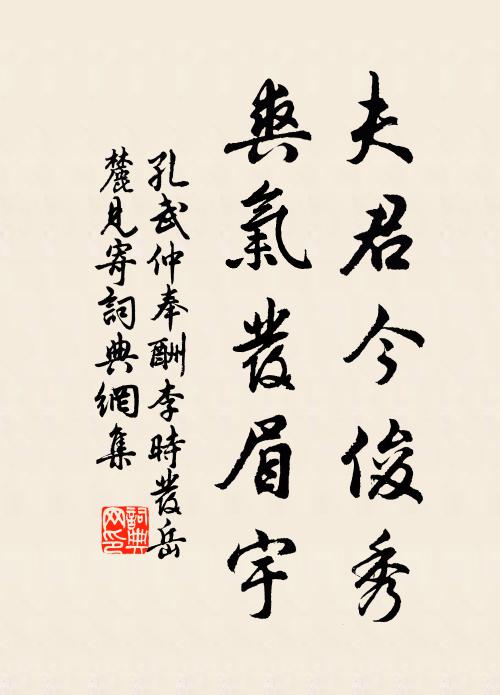 夫君今俊秀
爽氣發眉宇
孔武仲奉酬李時發岳
麓見寄詞典網集
詞典
网印